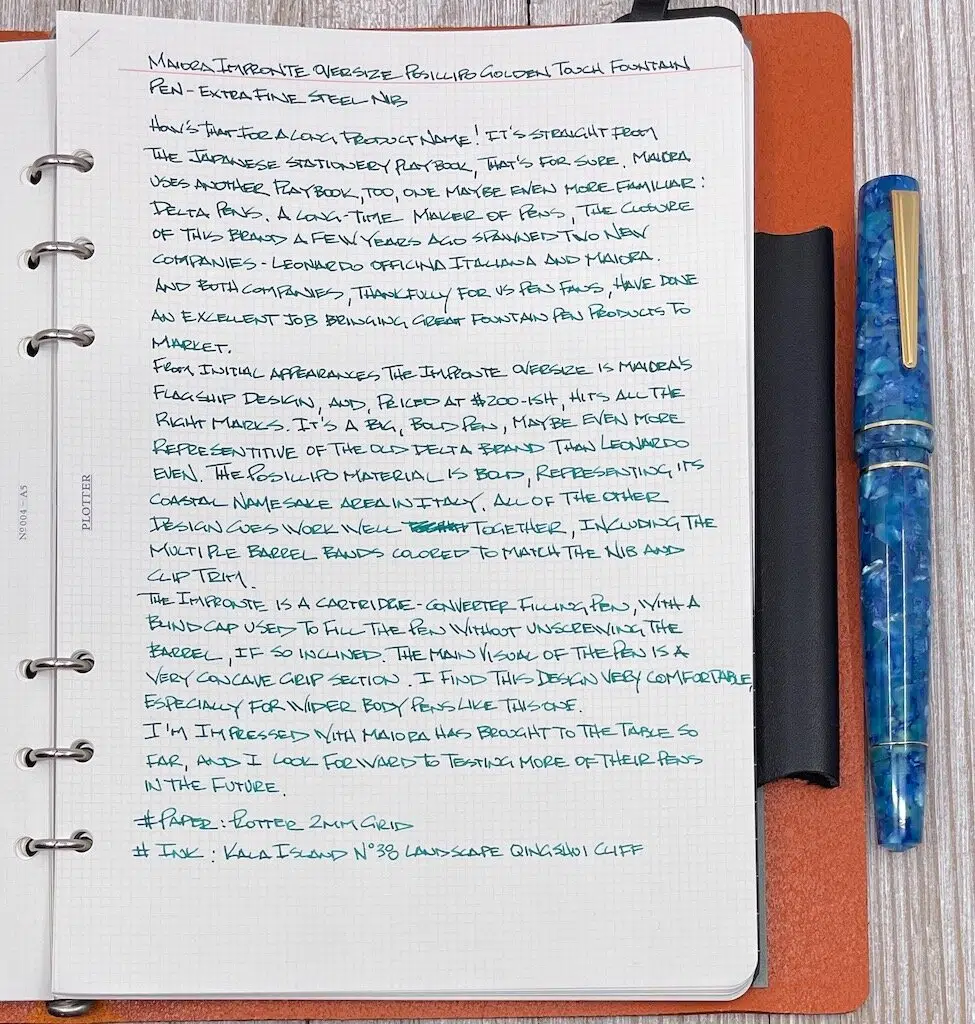 MAIORA IMPRONTE OVERSIZE POSILLIPO GOLDEN TOUCH FOUNTAIN
PEN - EXTRA FINE STEEL NIB
HOW'S THAT FOR A LONG PRODUCT NAME! IT'S STRAIGHT FROM
THE JAPANESE STATIONERY PLAYBOOK, THAT'S FOR SURE. MAIORA
USES ANOTHER PLAYBOOK, TOO, ONE MAYBE EVEN MORE FAMILIAR:
DELTA PENS. A LONG-TIME MAKER OF PENS, THE CLOSURE
OF THIS BRAND A FEW YEARS AGO SPAWNED TWO NEW
COMPANIES - LEONARDO OFFICINA ITALIANA AND MAIORA.
AND BOTH COMPANIES, THANKFULLY FOR US PEN FANS, HAVE DONE
AN EXCELLENT JOB BRINGING GREAT FOUNTAIN PEN PRODUCTS TO
MARKET.
FROM INITIAL APPEARANCES THE IMPRONTE OVERSIZE IS MAIORA'S
FLAGSHIP DESIGN, AND, PRICED AT $200-ISH, HITS ALL THE
RIGHT MARKS. IT'S A BIG, BOLD PEN, MAYBE EVEN MORE
REPRESENTITIVE OF THE OLD DELTA BRAND THAN LEONARDO
EVEN. THE POSILLIPO MATERIAL IS BOLD, REPRESENTING ITS
COASTAL NAMESAKE AREA IN ITALY. ALL OF THE OTHER
DESIGN CUES WORK WELL TOGETHER, INCLUDING THE
MULTIPLE BARREL BANDS COLORED TO MATCH THE NIB AND
CLIP TRIM.
THE IMPRONTE IS A CARTRIDGE-CONVERTER FILLING PEN, WITH A
BLIND CAP USED TO FILL THE PEN WITHOUT UNSCREWING THE
BARREL, IF SO INCLINED. THE MAIN VISUAL OF THE PEN IS A
VERY CONCAVE GRIP SECTION. I FIND THIS DESIGN VERY COMFORTABLE,
ESPECIALLY FOR WIDER BODY PENS LIKE THIS ONE.
I'M IMPRESSED WITH MAIORA HAS BROUGHT TO THE TABLE SO
FAR, AND I LOOK FORWARD TO TESTING MORE OF THEIR PENS
IN THE FUTURE.
# PAPER: PLOTTER 2MM GRID
# INK: KALA ISLAND N°38 LANDSCAPE QINGSHUI CLIFF
PLOTTER
Nº 004 – A5